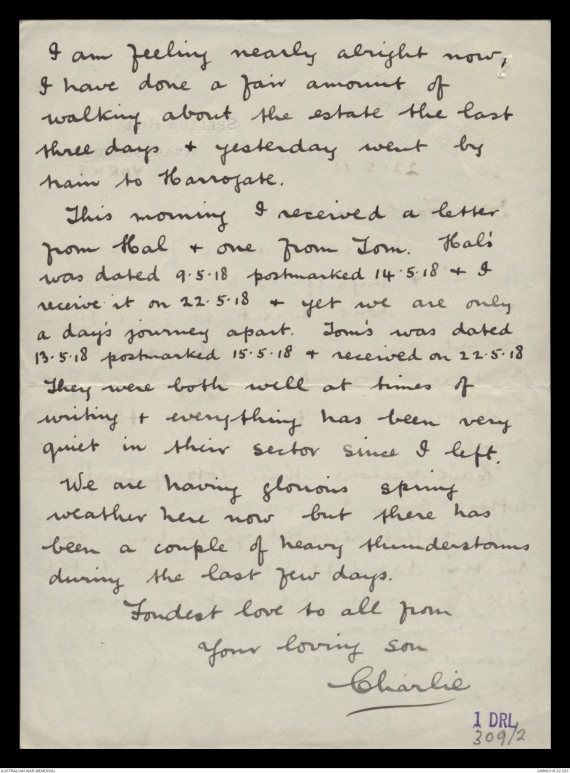 I am feeling nearly alright now,
I have done a fair amount of
walking about the estate the last
three days + yesterday went by
train to Harrogate.
This morning I received a letter
from Hal + one from Tom. Hal's
was dated 9.5.18 postmarked 14.5.18 + I
receive it on 22.5.18 + yet we are only
a day's journey apart. Tom's was dated
13.5.18 postmarked 15.5.18 + received on 22.5.18
They were both well at times of
writing + everything has been very
quiet in their sector since I left.
We are having glorious spring
weather here now but there has
been a couple of heavy thunderstorms
during the last few days.
Fondest love to all from
Your loving son
Charlie
1 DRL
309/2
AUSTRALIAN WAR MEMORIAL